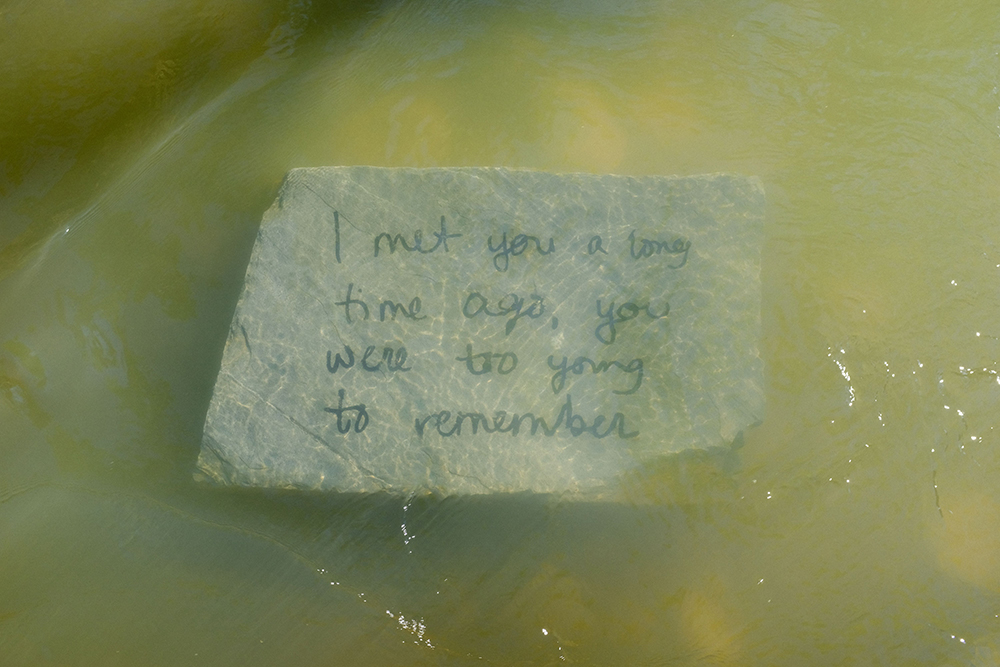 I met you a long
time ago, you
were too young
to remember